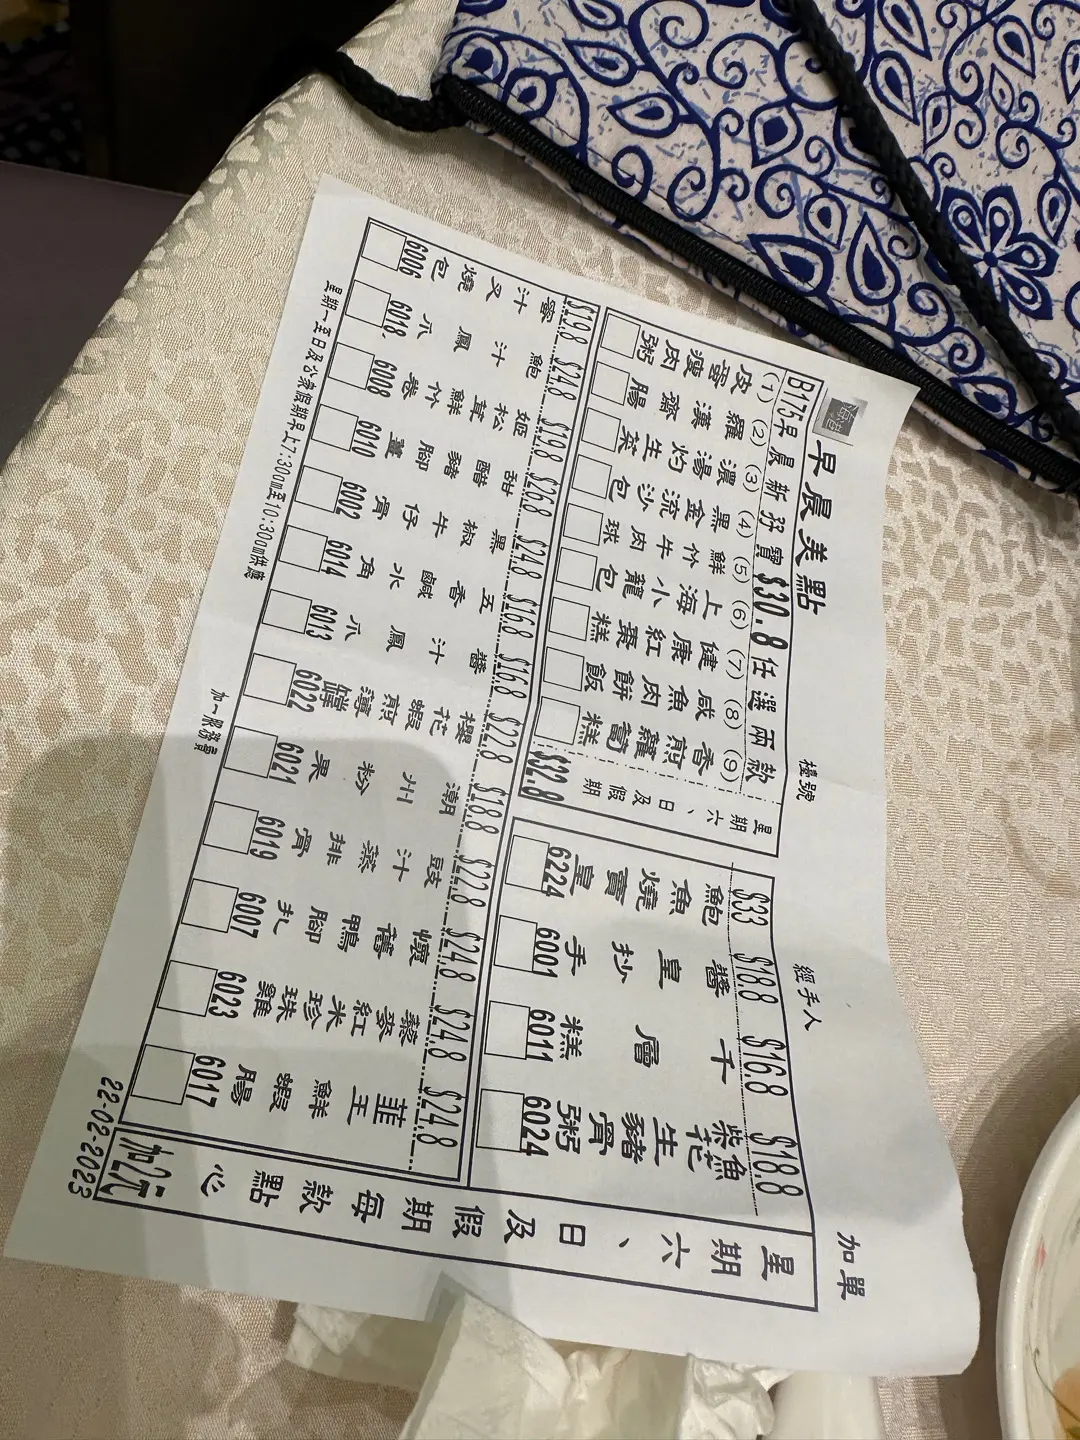 早晨美點
檯號
經手人
加單
B175早晨新孖寶$30.8任選兩款
(1)皮蛋瘦肉粥
(2)羅漢齋腸
(3)濃湯灼生菜
(4)黑金流沙包
(5)鮮竹牛肉球
(6)上海小龍包
(7)健康紅棗糕
(8)咸魚肉餅飯
(9)香煎蘿蔔糕
星期六、日及假期
$32.8
$33 鮑魚燒賣皇 6224
$18.8 醬皇抄手 6001
$16.8 千層糕 6011
$18.8 柴魚花生豬骨粥 6024
$19.8 蜜汁叉燒包 6006
$24.8 鮑汁鳳爪 6018
$19.8 姬松茸鮮竹卷 6008
$26.8 甜醋豬腳薑 6010
$24.8 黑椒牛仔骨 6002
$16.8 五香鹹水角 6014
$16.8 醬汁鳳爪 6013
$22.8 櫻花蝦煎薄罉 6022
$18.8 潮州粉果 6021
$22.8 豉汁蒸排骨 6019
$24.8 懷舊鴨腳扎 6007
$24.8 藜麥紅米珍珠雞 6023
$24.8 韮王鮮蝦腸 6017
星期六、日及假期每款點心加2元
星期一至日及公眾假期早上7:30am至10:30am供應
加一服務費
22-02-2023